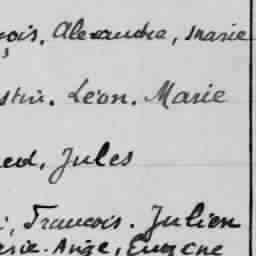 çois. Alexandre, Marie
stin. Léon. Marie
ed, Jules
François. Julien
arie. Ange, Eugène